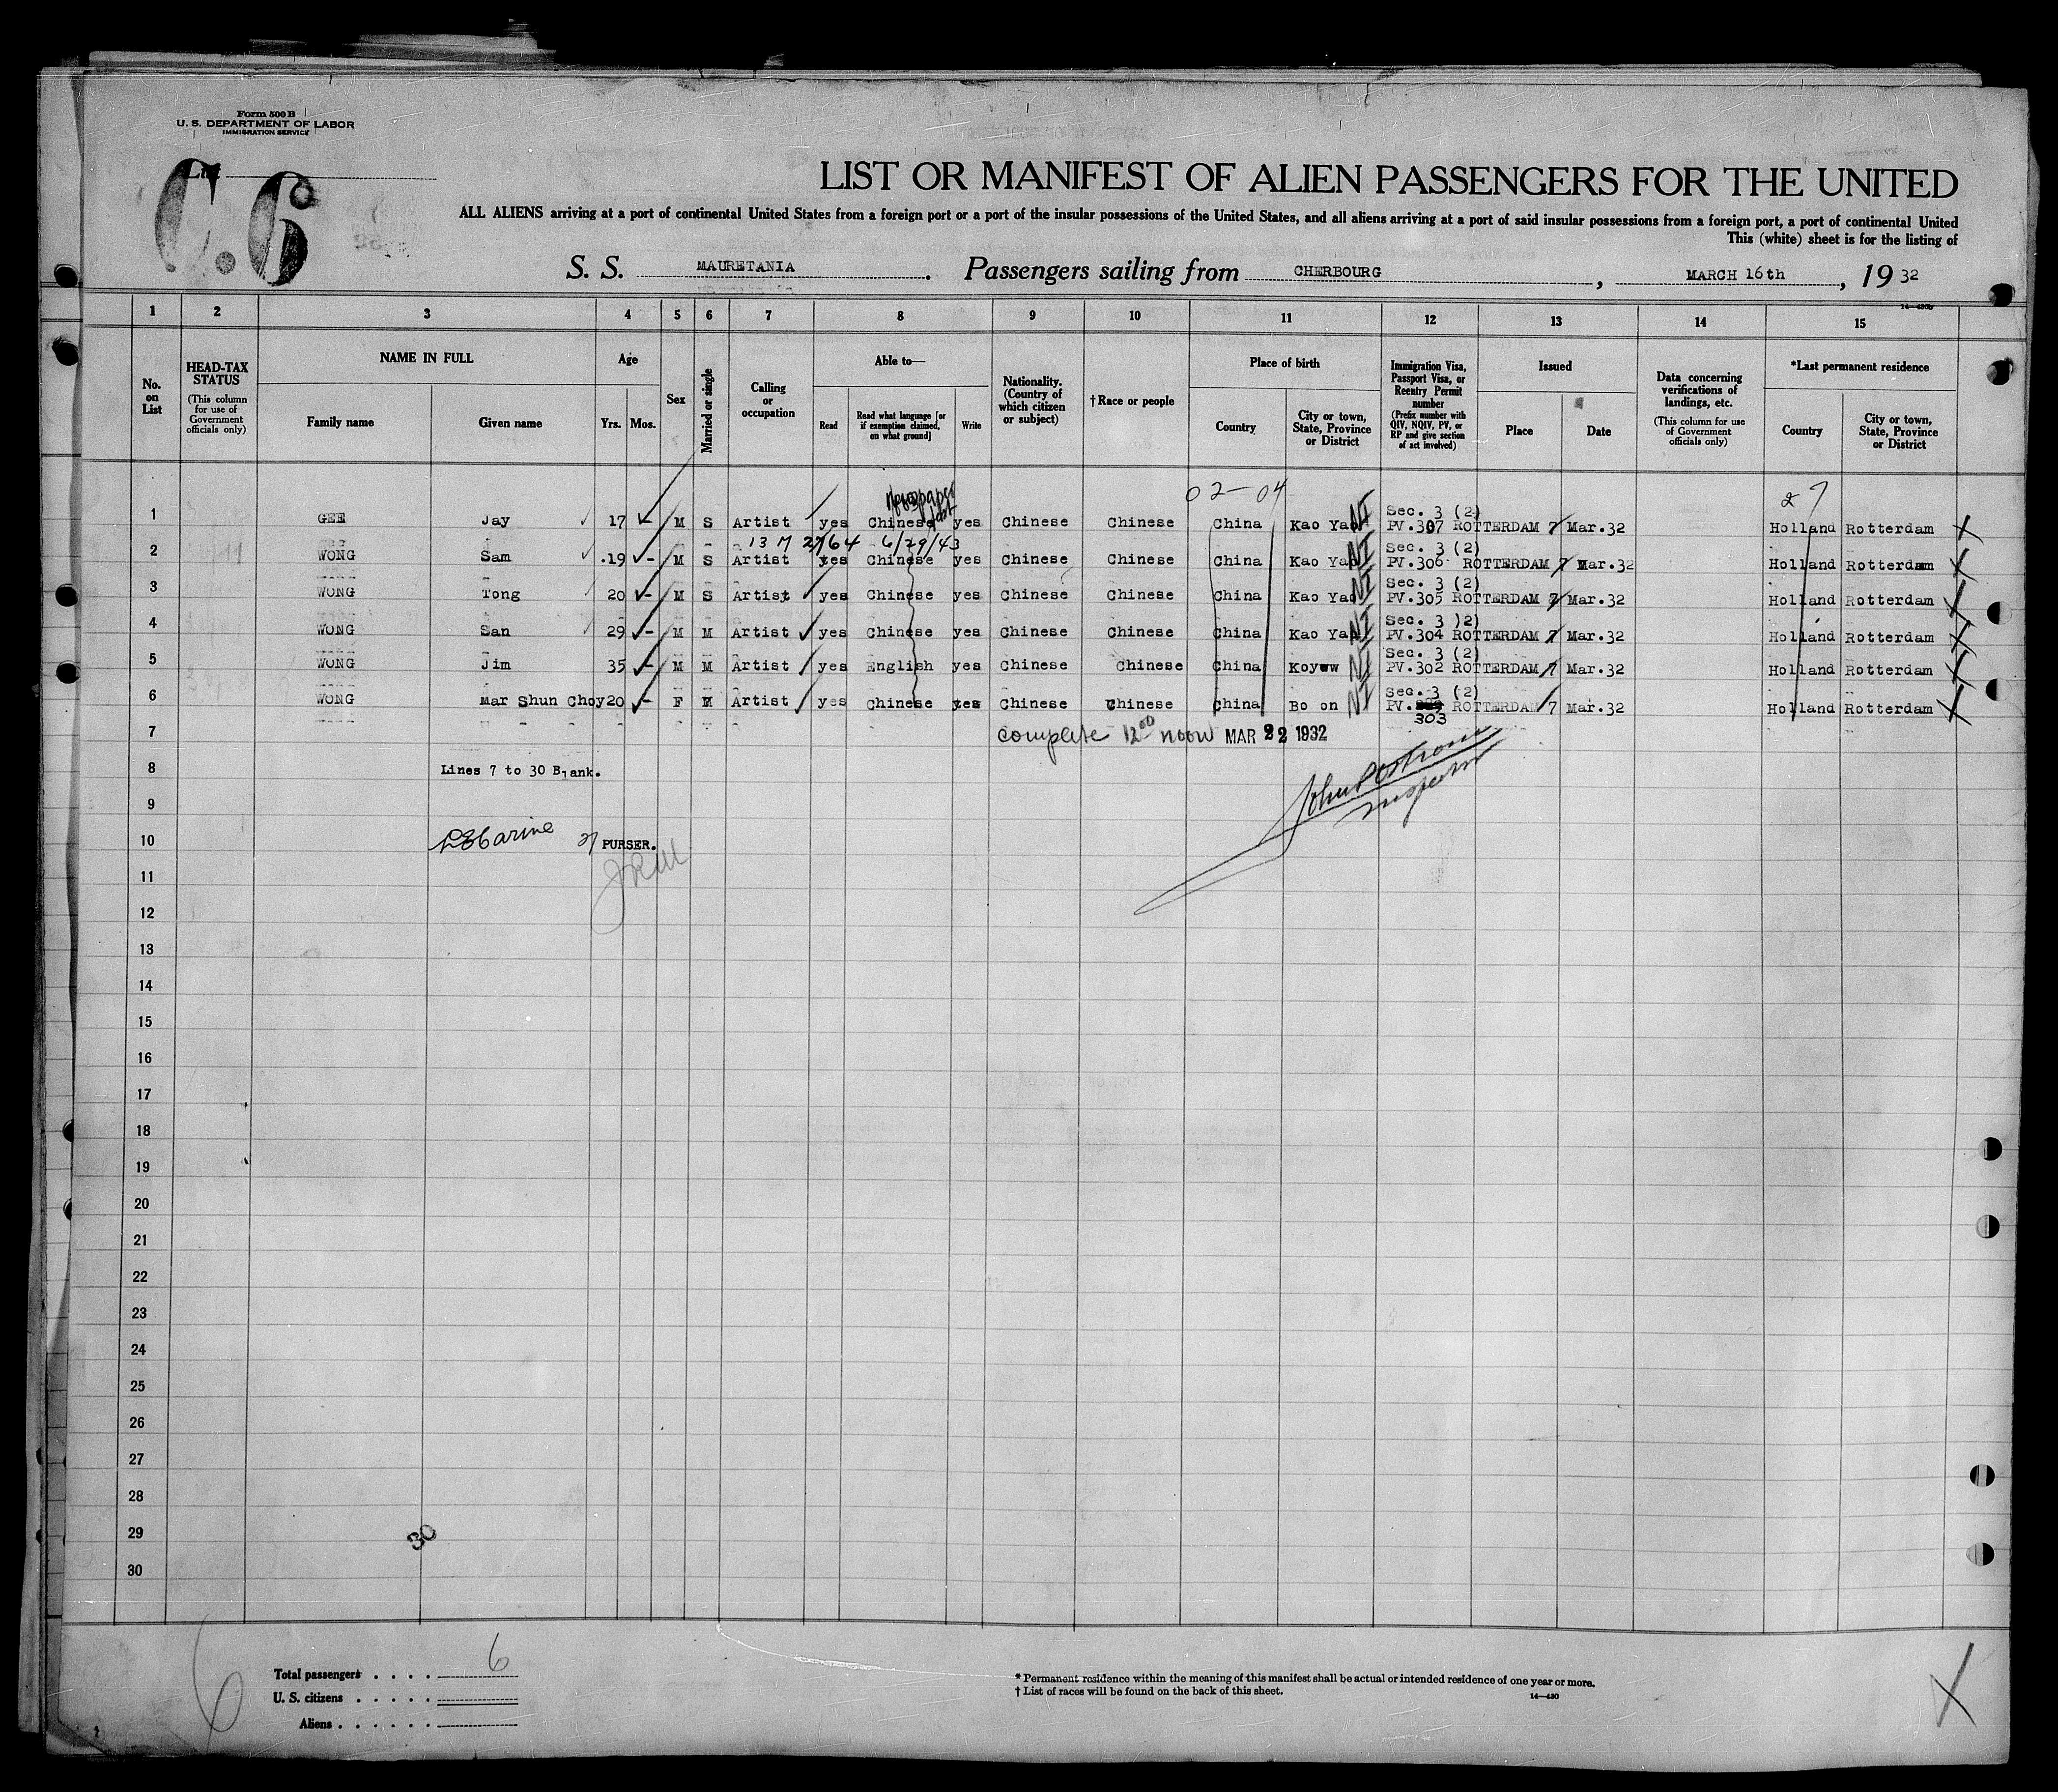 Form 500 B
U. S. DEPARTMENT OF LABOR
IMMIGRATION SERVICE
List
C.6
LIST OR MANIFEST OF ALIEN PASSENGERS FOR THE UNITED
ALL ALIENS arriving at a port of continental United States from a foreign port or a port of the insular possessions of the United States, and all aliens arriving at a port of said insular possessions from a foreign port, a port of continental United
This (white) sheet is for the listing of
S. S. MAURETANIA. Passengers sailing from CHERBOURG, MARCH 16th, 19 32
1 2 3 4 5 6 7 8 9 10 11 12 13 14 15
No. on List
HEAD-TAX STATUS
(This column for use of Government officials only)
NAME IN FULL
Family name
Given name
Age
Yrs. Mos.
Sex
Married or single
Calling or occupation
Able to—
Read
Read what language [or if exemption claimed, on what ground]
Write
Nationality. (Country of which citizen or subject)
†Race or people
Place of birth
Country
City or town, State, Province or District
Immigration Visa, Passport Visa, or Reentry Permit number
(Prefix number with QIV, NQIV, PV, or RP and give section of act involved)
Issued
Place
Date
Data concerning verifications of landings, etc.
(This column for use of Government officials only)
*Last permanent residence
Country
City or town, State, Province or District
Newspaper
02-04
27
1 GEE Jay 17 - M S Artist yes Chinese yes Chinese Chinese China Kao Yao NI Sec. 3 (2) PV.307 ROTTERDAM 7 Mar.32 Holland Rotterdam X
6/29/43
2 WONG Sam 19 - M S Artist yes Chinese yes Chinese Chinese China Kao Yao NI Sec. 3 (2) PV.306 ROTTERDAM 7 Mar.32 Holland Rotterdam X
3 WONG Tong 20 - M S Artist yes Chinese yes Chinese Chinese China Kao Yao NI Sec. 3 (2) PV.305 ROTTERDAM 7 Mar.32 Holland Rotterdam X
4 WONG San 29 - M M Artist yes Chinese yes Chinese Chinese China Kao Yao NI Sec. 3 )2) PV.304 ROTTERDAM 7 Mar.32 Holland Rotterdam X
5 WONG Jim 35 - M M Artist yes English yes Chinese Chinese China Koyww NI Sec. 3 (2) PV.302 ROTTERDAM 7 Mar.32 Holland Rotterdam X
6 WONG Mar Shun Choy 20 - F M Artist yes Chinese yes Chinese Chinese China Bo on NI Sec. 3 (2) PV. 303 ROTTERDAM 7 Mar.32 Holland Rotterdam X
7 complete 12 00 noon MAR 22 1932
8 Lines 7 to 30 Blank.
Inspector
9
10 PURSER.
11
12
13
14
15
16
17
18
19
20
21
22
23
24
25
26
27
28
29
30
30
6
Total passengers . . . . 6
U. S. citizens . . . . .
Aliens . . . . . .
* Permanent residence within the meaning of this manifest shall be actual or intended residence of one year or more.
† List of races will be found on the back of this sheet.
14—430
X